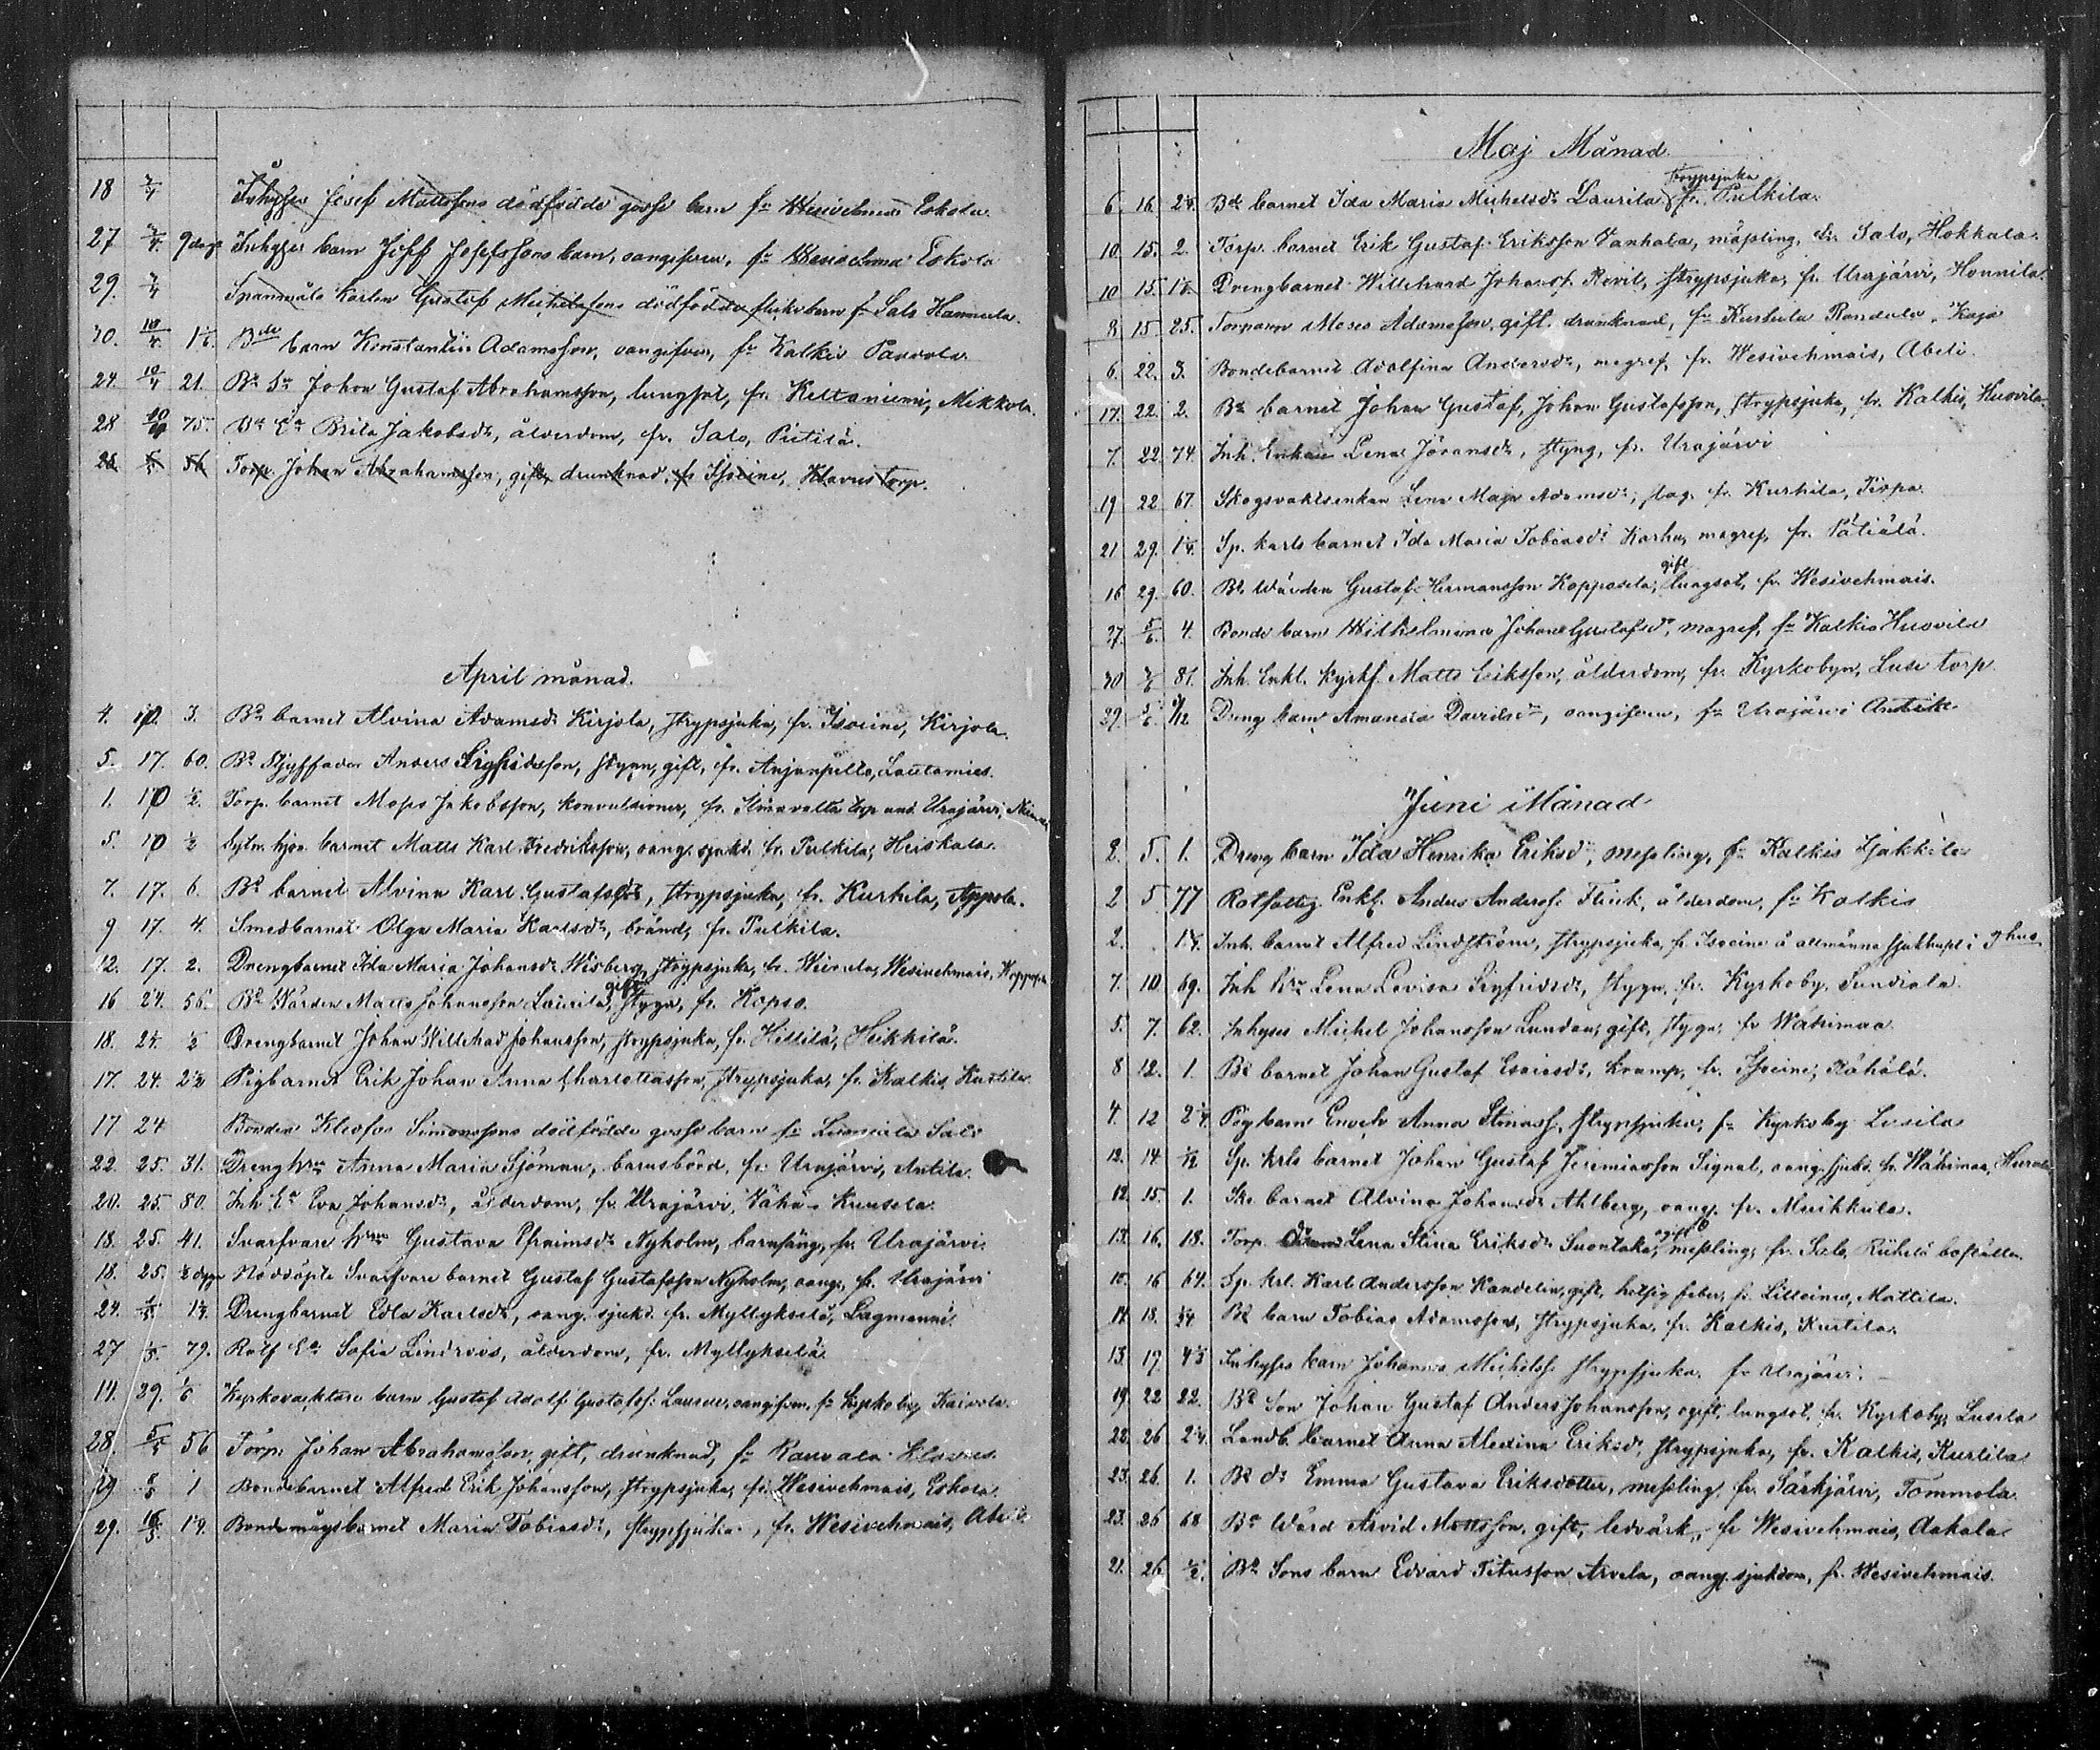 18 2/4 Inhyses Josef Mattssons dödfödde gosse barn fr Wesivehmais Eskola
27 2/4 9 dag Inhyses barn Joseff Josefssons barn, oangifven, fr Wesivehmais Eskola
29. 2/4 Spanmåls Karlen Gustaf Michelssons dödfödda flicko barn fr Salo Hannula.
30. 10/4 Bde barn Konstantin Adamsson, oangifven, fr Kalkis Paavola
24. 10/4 21. Bde Sn Johan Gustaf Abrahamsson, lungsot, fr. Keltaniemi, Mikkola.
28 10/4 75. Bde Ea Brita Jakobsdr, ålderdom, fr. Salo, Pietilä.
28 5/5 56 Torp. Johan Abrahamsson, gift, drunknad, fr Isoeine, Klavus torp.
April månad.
4. 10. 3. Bde barnet Alvina Adamsdr Kirjola, strypsjuka, fr. Isoeine, Kirjola.
5. 17. 60. Bde Styffader Anders Sigfridsson, stygn, gift, fr. Anjanpelto, Lautamies.
1. 10 1/2. Torp. barnet Moses Jakobsson, konvulsioner, fr. torp und. Urajärvi,
5. 10 1/2 barnet Matts Karl Fredriksson, oang. sjukd. fr. Pulkila, Heiskala.
7. 17. 6. Bde barnet Alvina Karl Gustafsdr, strypsjuka, fr. Kurhila, Appola.
9 17. 4. Smedbarnet Olga Maria Karlsdr, bränd, fr. Pulkila.
12. 17. 2. Drengbarnet Ida Maria Johansdr Wisberg, strypsjuka, fr. Wesivehmais,
16 24. 56. Bde Wärden Matts Johansson Laurila, gift, stygn, fr. Kopso.
18. 24. 1/2 Drengbarnet Johan Willehad Johansson, strypsjuka, fr. Hillilä, Heikkilä.
17. 24. 2 1/2 Pigbarnet Erik Johan Anna Charlottasson, strypsjuka, fr. Kalkis, Kurtila.
17 24 Bonden Kleofas Simonssons dödfödde gosse barn fr Salo
22. 25. 31. Dreng hru Anna Maria Sjöman, barnsbörd, fr. Urajärvi, Antila.
20. 25. 80. Inh. Ea Eva Johansdr, ålderdom, fr. Urajärvi, Vähä-Kuusela.
18. 25. 41. Svarfvare hru Gustava Efraimsdr Nyholm, barnsäng, fr. Urajärvi.
18. 25. Nöddöpte Svarfvare barnet Gustaf Gustafsson Nyholm, oang., fr. Urajärvi
24. 1/5 1 1/4. Drengbarnet Edla Karlsdr, oang. sjukd. fr. Myllykselä, Lagmanni.
27 1/5. 79. Rotf Ea Sofia Lindroos, ålderdom, fr. Myllykselä
14. 29. 1/6 Kyrkovaktare barn Gustaf Adolf Gustafss: oangifven, fr Kyrkoby Kaivola.
28. 5/5 56 Torp: Johan Abrahamsson, gift, drunknad, fr Rauvala Klavus.
29 8/5 1 Bondebarnet Alfred Erik Johansson, strypsjuka, fr. Wesivehmais, Eskola.
29. 15/5. 1 1/4. Bondemågsbarnet Maria Tobiasdr, strypsjuka, fr. Wesivehmais, Abeli
Maj Månad.
6. 16. 2 1/4. Bde barnet Ida Maria Michelsdr Laurila strypsjuka fr. Pulkila.
10. 15. 2. Torp. barnet Erik Gustaf Eriksson Vanhala, mässling, fr. Salo, Hokkala.
10 15. Drengbarnet Willehard Johanss. Revil, strypsjuka, fr. Urajärvi, Honnila.
8. 15 25. Torparen Moses Adamsson, gift, drunknad, fr Kurhila Randala,
6. 22. 3. Bondebarnet Adolfina Andersdr, magref, fr. Wesivehmais, Abeli.
17. 22. 2. Bde barnet Johan Gustaf, Johan Gustafsson, strypsjuka, fr. Kalkis, Huovila.
7. 22 74. Inh. Enkan Lena Jöransdr, styng, fr. Urajärvi
19 22 67. Skogsvaktsenkan Lena Maja Adamsdr, slag, fr. Kurhila,
21 29. 1 1/4. Sp. karls barnet Ida Maria Tobiasdr Karhu, magref, fr. Pätiälä.
16 29. 60. Bde Wärden Gustaf Hermansson Koppasela, gift lungsot, fr. Wesivehmais.
27. 5/6 4. Bonde barn Wilhelmina Johan Gustafsdr, magref, fr Kalkis Huovila
30 81. Inh. Enkl. kyrkf. Matts Eriksson, ålderdom, fr. Kyrkobyn, Lusi torp.
29. 9/12 Dreng barn Amanda Davidsdr, oangifven, fr Urajärvi Antila
Juni Månad
2. 5. 1. Dreng barn Ida Henrika Eriksdr, messling, fr Kalkis
2 5 77 Rotfattig Enkl. Anders Anderss. Flink, ålderdom, fr Kalkis
2. 1 1/4. Inh. barnet Alfred Lindström, strypsjuka, fr. Isoeine å allmänna
7. 10 69. Inh hru Lena Lovisa Sigfridsdr, stygn, fr. Kyrkoby, Sundiala.
5. 7. 62. Inhyses Michel Johansson Lundan, gift, stygn, fr Wähimaa
8 12. 1. Bde barnet Johan Gustaf Esaiasdr, kramp, fr. Isoeine, Rähälä.
4. 12 2 1/4 Pigbarn Enoch Anna Stinass, strypsjuka, fr Kyrkoby Lusila
12. 14 Sp. krls barnet Johan Gustaf Jeremiasson Signal, oang. sjukd. fr. Wähimaa,
12. 15. 1. Skr barnet Alvina Johansdr Ahlberg, oang. fr. Musikkula.
13. 16. 18. Torp. Lena Stina Eriksdr Suontaka, ogift messling, fr. Salo,
10. 16 64. Sp. krl. Karl Andersson Kandelin, gift, hetsig feber, fr. Mattila.
14 18. Bde barn Tobias Adamsson, strypsjuka, fr. Kalkis, Kurtila.
13 19. Inhyses barn Johannes Michelss. strypsjuka, fr Urajärvi.
19. 22 22. Bde Son Johan Gustaf Anders Johansson, ogift, lungsot, fr. Kyrkoby, Lusila
22. 26 2 1/4. Landb. barnet Anna Aledina Eriksdr, strypsjuka, fr. Kalkis, Kurtila
23. 26. 1. Bde dr Emma Gustava Eriksdotter, messling, fr. Särkjärvi, Tommola.
23. 26 68 Bde Wärd Arvid Mattsson, gift, ledvärk, fr Wesivehmais, Aakala
21. 26. 1/2. Bde Sons barn Edvard Titusson Arvela, oang. sjukdom, fr. Wesivehmais.